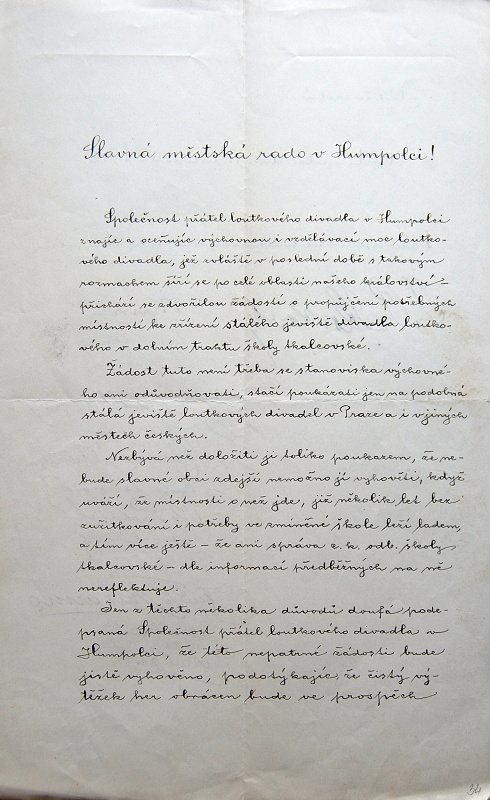 Slavná městská rado v Humpolci!
Společnost přátel loutkového divadla v Humpolci
znajíc a oceňujíc výchovnou i vzdělávací moc loutko-
vého divadla, jež zvláště v poslední době s takovým
rozmachem šíří se po celé oblasti našeho království -
přichází se zdvořilou žádostí o propůjčení potřebných
místností ke zřízení stálého jeviště divadla loutko-
vého v dolním traktu školy tkalcovské.
Žádost tuto není třeba se stanoviska výchovné-
ho ani odůvodňovati, stačí poukázati jen na podobná
stálá jeviště loutkových divadel v Praze a i v jiných
městech českých.
Nezbývá než doložiti ji toliko poukazem, že ne-
bude slavné obci zdejší nemožno jí vyhověti, když
uváží, že místnosti o něž jde, již několik let bez
zužitkování i potřeby ve zmíněné škole leží ladem,
a tím více ještě - že ani správa c. k. odb. školy
tkalcovské - dle informací předběžných na ně
nereflektuje.
Jen z těchto několika důvodů doufá pode-
psaná Společnost přátel loutkového divadla v
Humpolci, že této nepatrné žádosti bude
jistě vyhověno, podotýkajíc, že čistý vý-
těžek her obrácen bude ve prospěch
34